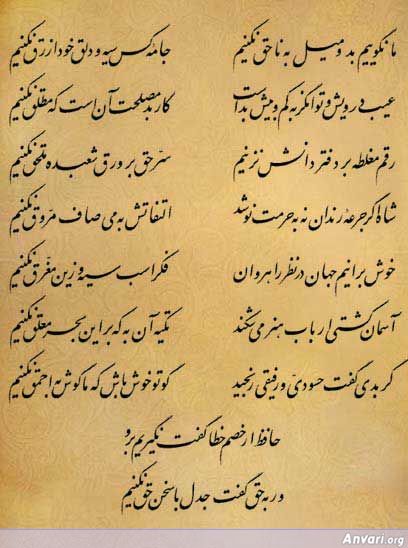 ما نگوییم بد و میل به ناحق نکنیم جامهٔ کس سیه و دلق خود ازرق نکنیم
عیب درویش و توانگر به کم و بیش بد است کار بد مصلحت آن است که مطلق نکنیم
رقم مغلطه بر دفتر دانش نزنیم سر حق بر ورق شعبده ملحق نکنیم
شاه اگر جرعهٔ رندان نه به حرمت نوشد التفاتش به می صاف مروق نکنیم
خوش برانیم جهان در نظر راهروان فکر اسب سیه و زین مغرق نکنیم
آسمان کشتی ارباب هنر می‌شکند تکیه آن به که بر این بحر معلق نکنیم
گر بدی گفت حسودی و رفیقی رنجید گو تو خوش باش که ما گوش به احمق نکنیم
حافظ ار خصم خطا گفت نگیریم بر او
ور به حق گفت جدل با سخن حق نکنیم
Anvari.org